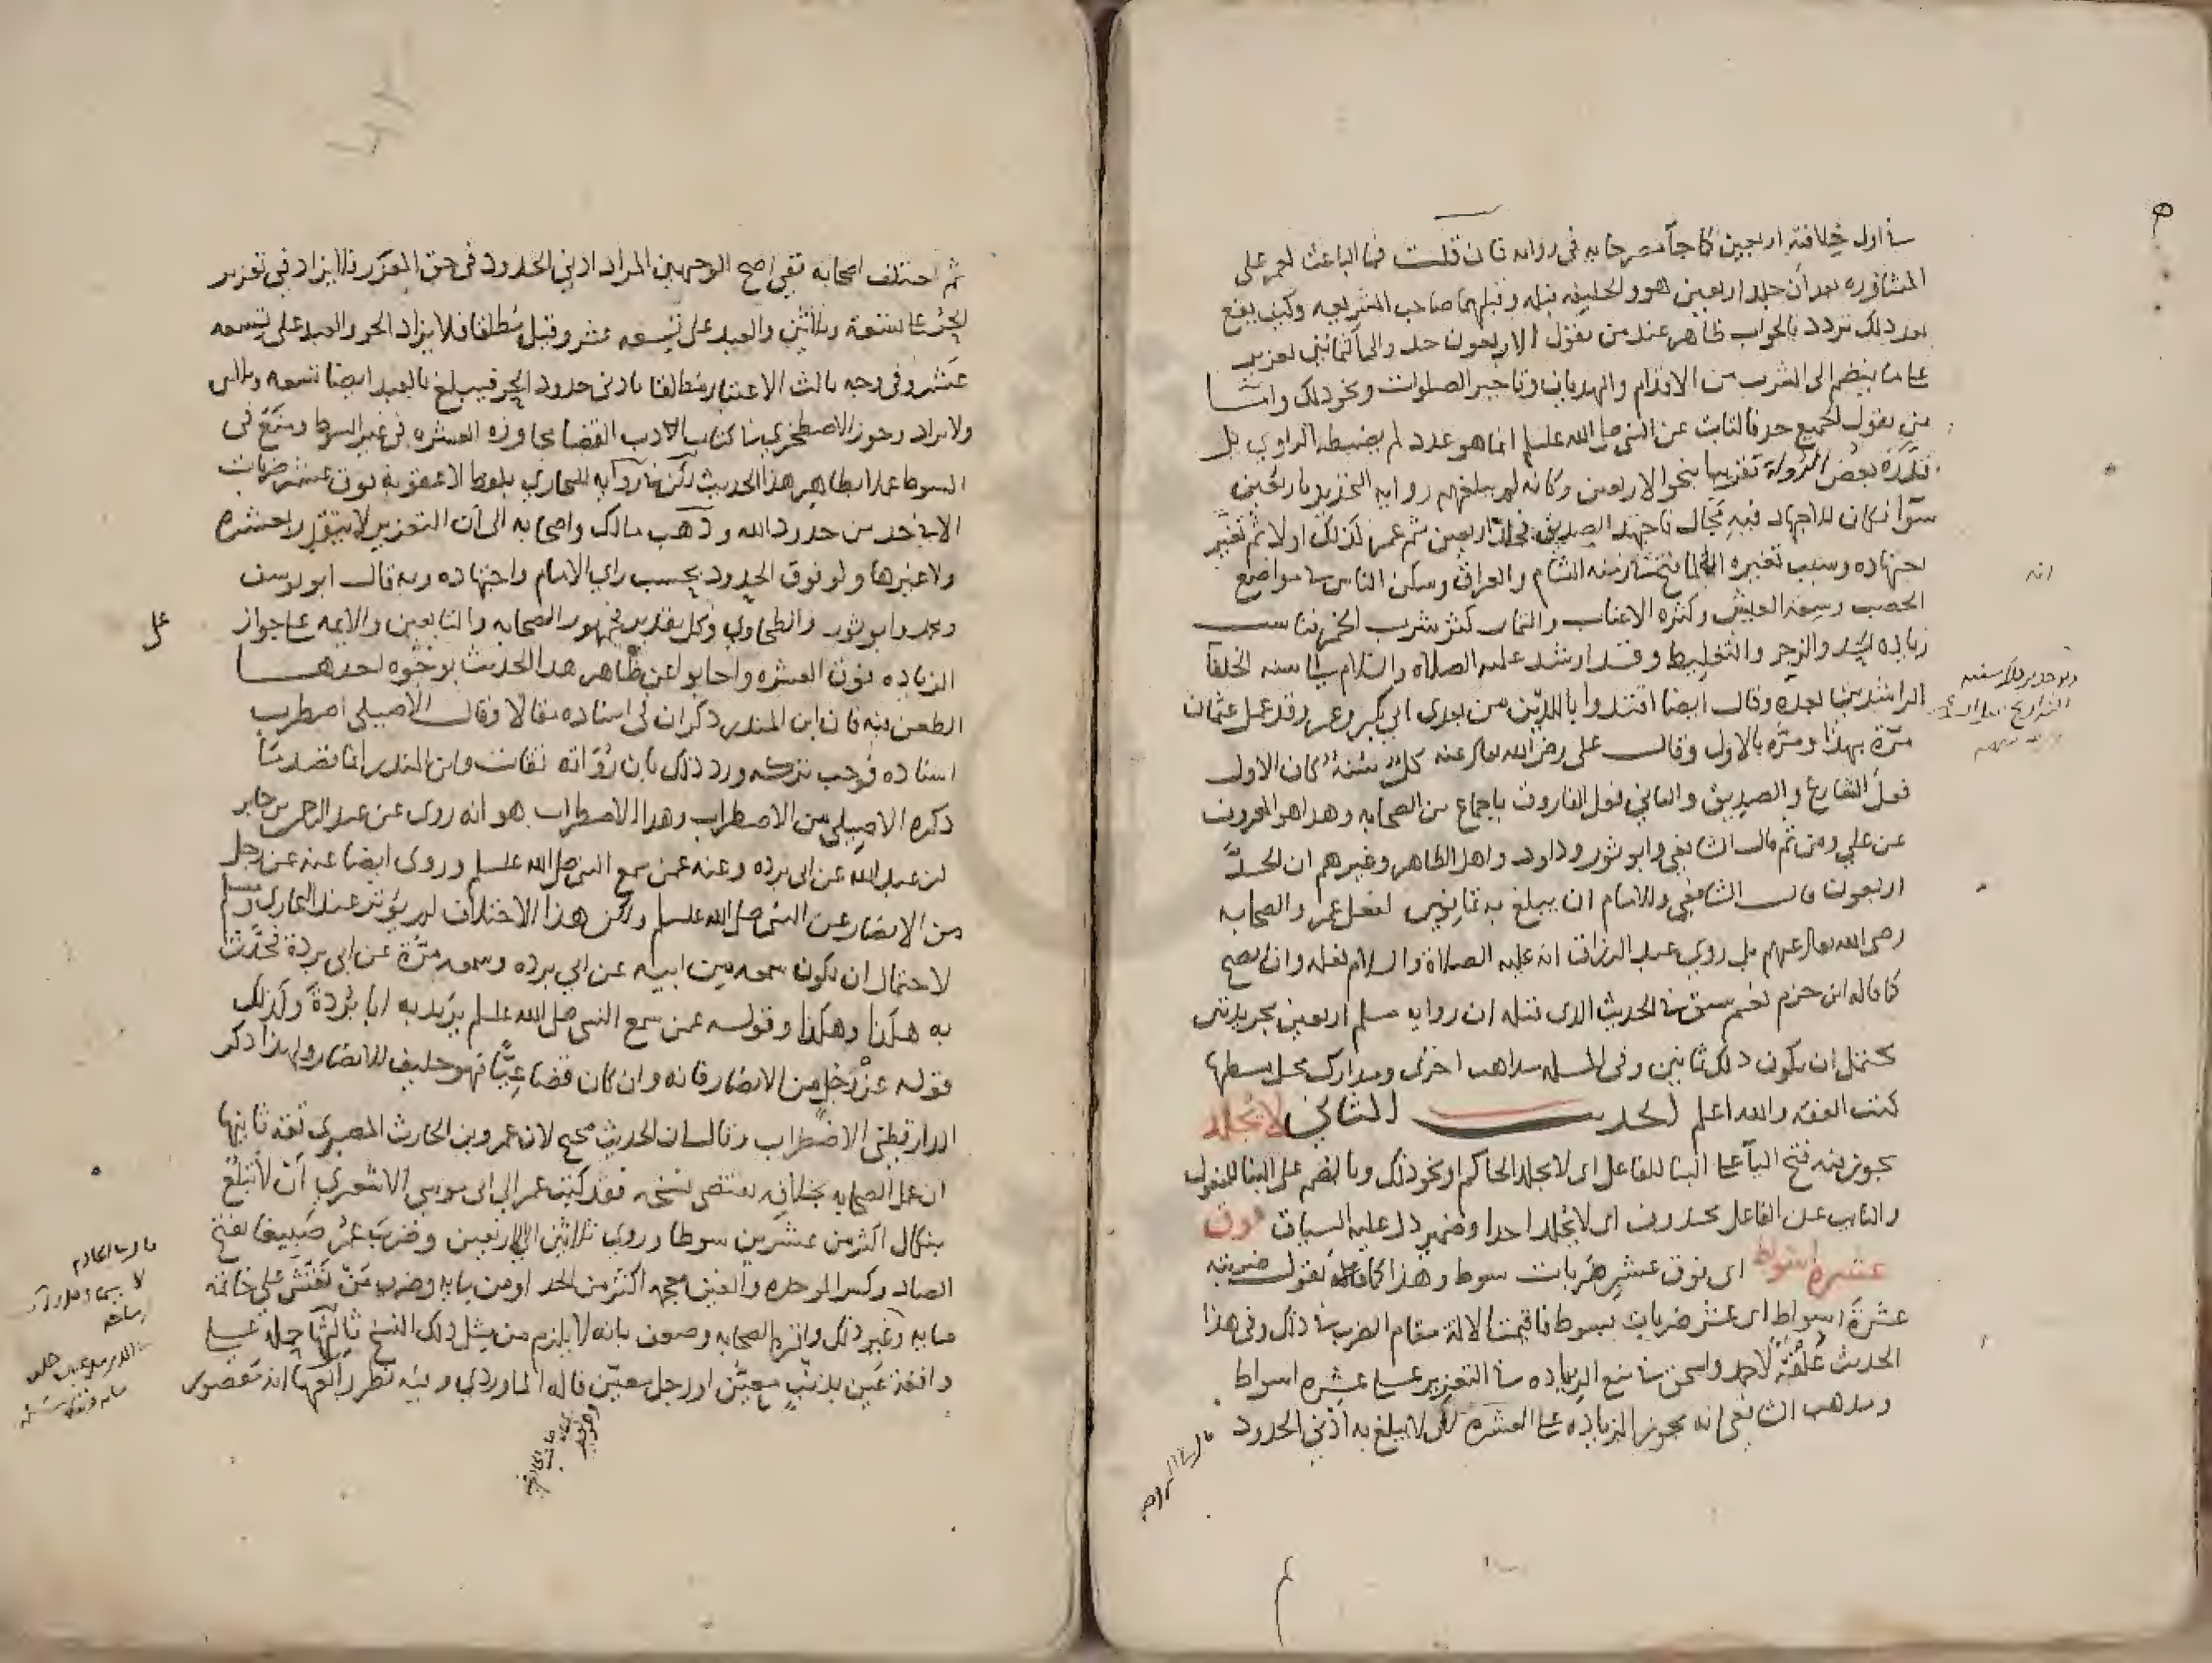 في اول خلافته اربعين كما جآ مصرحا به في روايه فان قلت فما الباعث لعمر على
المشاوره بعد ان جلد اربعين هو والخليفه قبله وقبلهما صاحب الشريعه وكيف يقع
بعد ذلك تردد فالجواب ظاهر عند من يقول الاربعون حد والى الثمانين تعزير
على ما ينضم الى الشرب من الاقدام والهذيان وتاخير الصلوات ونحو ذلك واما
من يقول الجميع حد فالثابت عن النبي صلى الله عليه وسلم انما هو عدد لم يضبطه الراوي بل
قدره بعض الرواة تقريبا بنحو الاربعين وكانه لم يبلغهم روايه التحديد باربعين
سوآ فكان للاجتهاد فيه مجال فاجتهد الصديق فجلد اربعين ثم عمر كذلك اولا ثم تغير
اجتهاده وسبب تغيره انه لما فتحت الشام والعراق وسكن الناس في مواضع
الخصب وسعة العيش وكثره الاعناب والثمار كثر شرب الخمر فناسب
زياده الحد والزجر والتغليظ وقد ارشد عليه الصلاه والسلام الى سنه الخلفآ
الراشدين بعده وقال ايضا اقتدوا باللذين من بعدي ابي بكر وعمر وقد عمل عثمان
مرة بهذا ومره بالاول وقال علي رضي الله تعالى عنه كل سنة كان الاول
فعل الشارع والصديق والثاني فعل الفاروق باجماع من الصحابه وهذا هو المعروف
عن علي ومن ثم قال الشافعي وابو ثور وداود واهل الظاهر وغيرهم ان الحد
اربعون قال الشافعي وللامام ان يبلغ به ثمانين لفعل عمر والصحابه
رضي الله تعالى عنهم بل روي عبد الرزاق انه عليه الصلاة والسلام فعله وان لم يصح
كما قاله ابن حزم نعم سبق في الحديث الذي قبله ان روايه مسلم اربعين بجريدتين
يحتمل ان يكون ذلك ثمانين وفي المسله مذاهب اخرى ومدارك محل بسطها
كتب الفقه والله اعلم الحديث الثاني لا يجلد
يجوز فيه فتح اليآ على البنا للفاعل اي لا يجلد الحاكم او نحو ذلك وبالضم على البنا للمفعول
والنايب عن الفاعل محذوف اي لا يجلد احد او ضمير دل عليه السياق فوق
عشرة اسواط اي فوق عشر ضربات سوط وهذا كما يقول ضربته
عشرة اسواط اي عشر ضربات بسوط فاقيمت الالة مقام الضرب في ذلك وفي هذا
الحديث علقة لاحمد واسحق في منع الزياده في التعزير على عشره اسواط
ومذهب الشافعي انه يجوز الزياده على العشره لكن لا يبلغ به ادنى الحدود
انه
قال في الروضه
ثم اختلف اصحابه ففي اصح الوجهين المراد ادنى الحدود في حق المعزر فلا يزاد في تعزير
الحر على تسعة وثلاثين والعبد على تسعه عشر وقيل مطلقا فلا يزاد الحر والعبد على تسعه
عشر وفي وجه ثالث الاعتبار مطلقا بادنى حدود الحر فيبلغ بالعبد ايضا تسعه وثلاثين
ولا يزاد وجوز الاصطخري في كتاب ادب القضا مجاوزه العشره في غير السوط ومنع في
السوط عملا بظاهر هذا الحديث لكن في روايه للبخاري بلفظ لا عقوبة فوق عشر ضربات
الا في حد من حدود الله وذهب مالك واصحابه الى ان التعزير لا يتقدر بعشره
ولا غيرها ولو فوق الحدود بحسب راي الامام واجتهاده وبه قال ابو يوسف
ومحمد وابو ثور والطحاوي وكل تقدير فجمهور الصحابه والتابعين والائمه على جواز
الزياده فوق العشره واجابوا عن ظاهر هذا الحديث بوجوه احدهــا
الطعن فيه فان ابن المنذر ذكر ان في اسناده مقالا وقال الاصيلي اضطرب
اسناده فوجب تركه ورد ذلك بان رواته ثقات وابن المنذر انما قصد ما
ذكره الاصيلي من الاضطراب وهذا الاضطراب هو انه روى عن عبد الرحمن بن جابر
بن عبد الله عن ابي برده وعنه عمن سمع النبي صلى الله عليه وسلم وروى ايضا عنه عن رجل
من الانصار عن النبي صلى الله عليه وسلم ولكن هذا الاختلاف لم يؤثر عند البخاري ومسلم
لاحتمال ان يكون سمعه من ابيه عن ابي برده وسمعه مرة عن ابي بردة فحدث
به هكذا وهكذا وقوله عمن سمع النبي صلى الله عليه وسلم يريد به ابا بردة وكذلك
قوله عن رجل من الانصار فانه وان كان قضاعيا فهو حليف للانصار ولهذا ذكر
الدارقطني الاضطراب وقال ان الحديث صحيح لان عمرو بن الحارث المصري ثقة ثانيها
ان عمل الصحابه بخلافه يقتضي نسخه فقد كتب عمر الى ابي موسى الاشعري ان لا تبلغ
بنكال اكثر من عشرين سوطا وروي ثلاثين الى اربعين وضرب عمر صبيغا بفتح
الصاد وكسر الموحده والغين معجمه اكثر من الحد او من مايه وضرب من نقش على خاتمه
مايه وغير ذلك واقره الصحابه وضعف بانه لا يلزم من مثل ذلك النسخ ثالثها حمله على
واقعه عين بذنب معين او رجل معين قاله الماوردي وفيه نظر رابعها انه مقصور